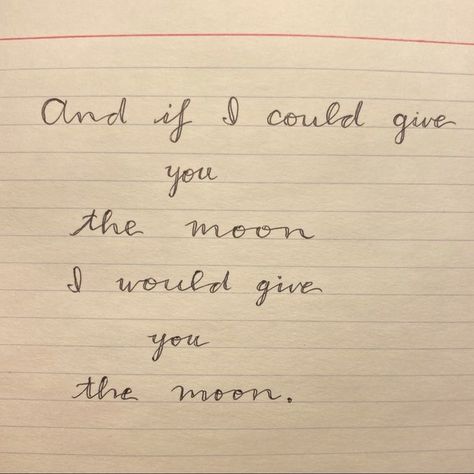 And if I could give
you
the moon
I would give
you
the moon.